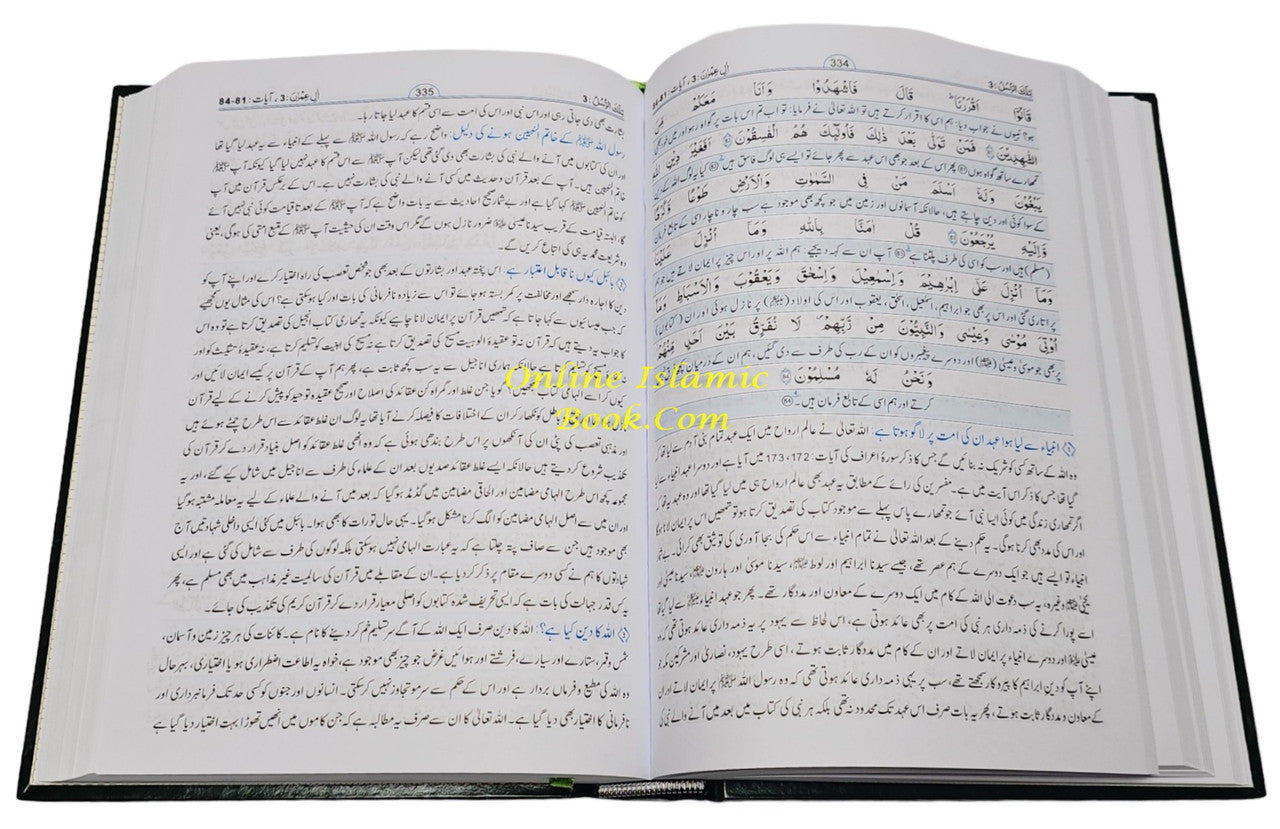 تِلْكَ الرُّسُلُ: 3
334
اٰلِ عِمْرٰنَ: 3، آیات: 81-84
قَالُوْٓا اَقْرَرْنَا قَالَ فَاشْهَدُوْا وَاَنَا مَعَكُمْ مِّنَ
ہو؟ نبیوں نے جواب دیا: ہم اس کا اقرار کرتے ہیں تو اللہ تعالٰی نے فرمایا: تو اب تم اس بات پر گواہ رہو اور میں خود بھی
الشّٰهِدِيْنَ ﴿81﴾ فَمَنْ تَوَلّٰى بَعْدَ ذٰلِكَ فَاُولٰٓئِكَ هُمُ الْفٰسِقُوْنَ ﴿82﴾ اَفَغَيْرَ دِيْنِ اللّٰهِ
تمھارے ساتھ گواہ ہوں ﴿81﴾ پھر اس کے بعد جو بھی اس عہد سے پھر جائے تو ایسے ہی لوگ فاسق ہیں ﴿82﴾ کیا یہ لوگ اللہ کے دین
يَبْغُوْنَ وَلَهٗٓ اَسْلَمَ مَنْ فِي السَّمٰوٰتِ وَالْاَرْضِ طَوْعًا وَّكَرْهًا
کے سوا کوئی اور دین چاہتے ہیں، حالانکہ آسمانوں اور زمین میں جو کچھ بھی موجود ہے سب چار و ناچار اسی کے تابع فرمان
وَّاِلَيْهِ يُرْجَعُوْنَ ﴿83﴾ قُلْ اٰمَنَّا بِاللّٰهِ وَمَآ اُنْزِلَ عَلَيْنَا
(مسلم) ہیں اور سب کو اسی کی طرف پلٹنا ہے ﴿83﴾ آپ ان سے کہہ دیجیے: ہم اللہ پر اور اس چیز پر ایمان لاتے ہیں جو ہم
وَمَآ اُنْزِلَ عَلٰٓى اِبْرٰهِيْمَ وَاِسْمٰعِيْلَ وَاِسْحٰقَ وَيَعْقُوْبَ وَالْاَسْبَاطِ وَمَآ
پر اتاری گئی اور اس پر بھی جو ابراہیم، اسمٰعیل، اسحٰق، یعقوب اور اس کی اولاد پر نازل ہوئی اور ان (کتابوں)
اُوْتِيَ مُوْسٰى وَعِيْسٰى وَالنَّبِيُّوْنَ مِنْ رَّبِّهِمْ لَا نُفَرِّقُ بَيْنَ اَحَدٍ مِّنْهُمْ
پر بھی جو موسٰی و عیسٰی اور دوسرے پیغمبروں کو ان کے رب کی طرف سے دی گئیں، ہم ان کے درمیان
وَنَحْنُ لَهٗ مُسْلِمُوْنَ ﴿84﴾
کرتے اور ہم اسی کے تابع فرمان ہیں۔ ﴿84﴾
انبیاء سے لیا ہوا عہد ان کی امت پر لاگو ہوتا ہے: اللہ تعالٰی نے عالم ارواح میں ایک عہد تمام بنی آدم سے لیا تھا کہ
وہ اللہ کے ساتھ کسی کو شریک نہ بنائیں گے جس کا ذکر سورۂ اعراف کی آیات: 172، 173 میں آیا ہے اور دوسرا عہد انبیاء سے لیا
گیا تھا جس کا ذکر اس آیت میں ہے۔ مفسرین کی رائے کے مطابق یہ عہد بھی عالم ارواح ہی میں لیا گیا تھا اور وہ عہد یہ تھا کہ
اگر تمھاری زندگی میں کوئی ایسا نبی آئے جو تمھارے پاس پہلے سے موجود کتاب کی تصدیق کرتا ہو تو تمھیں اس پر ایمان لانا ہوگا
اور اس کی مدد بھی کرنا ہوگی۔ یہ حکم دینے کے بعد اللہ تعالٰی نے تمام انبیاء سے اس حکم کی بجا آوری کی توثیق بھی کرائی۔
انبیاء تو ایسے ہیں جو ایک دوسرے کے ہم عصر تھے، جیسے سیدنا ابراہیم اور لوط، سیدنا موسٰی اور ہارون، سیدنا عیسٰی اور
یحیٰی وغیرہ، یہ سب دعوت الی اللہ کے کام میں ایک دوسرے کے معاون اور مددگار تھے۔ پھر جو عہد انبیاء سے لیا گیا
اسے پورا کرنے کی ذمہ داری ہر نبی کی امت پر بھی عائد ہوتی ہے، اس لحاظ سے یہود پر یہ ذمہ داری عائد ہوتی تھی کہ وہ
عیسٰی اور دوسرے انبیاء پر ایمان لاتے اور ان کے کام میں مددگار ثابت ہوتے، اسی طرح یہود، نصارٰی اور مشرکین مکہ جو
اپنے آپ کو دین ابراہیم کا پیروکار سمجھتے تھے، سب پر یہی ذمہ داری عائد ہوتی تھی کہ وہ رسول اللہ ﷺ پر ایمان لاتے اور ان
کے معاون و مددگار ثابت ہوتے، پھر یہ بات صرف اس عہد تک محدود نہ تھی بلکہ ہر نبی کی کتاب میں بعد میں آنے والے نبی کی
تِلْكَ الرُّسُلُ: 3
335
اٰلِ عِمْرٰنَ: 3، آیات: 81-84
بشارت بھی دی جاتی رہی اور اس نبی اور اس کی امت سے اسی قسم کا عہد لیا جاتا رہا۔
رسول اللہ ﷺ کے خاتم النبیین ہونے کی دلیل: واضح رہے کہ رسول اللہ ﷺ سے پہلے کے انبیاء سے یہ عہد لیا گیا تھا
اور ان کی کتابوں میں آنے والے نبی کی بشارت بھی دی گئی تھی لیکن آپ ﷺ سے اس قسم کا عہد نہیں لیا گیا کیونکہ آپ ﷺ
خاتم النبیین ہیں۔ آپ کے بعد قرآن و حدیث میں کسی آنے والے نبی کی بشارت نہیں ہے۔ اس کے برعکس قرآن میں آپ
کو خاتم النبیین ﷺ کہا گیا ہے اور بے شمار صحیح احادیث سے یہ بات واضح ہے کہ آپ ﷺ کے بعد تا قیامت کوئی نبی نہیں آئے
گا، البتہ قیامت کے قریب سیدنا عیسٰی ضرور نازل ہوں گے مگر اس وقت ان کی حیثیت آپ ﷺ کے متبع امتی کی ہوگی، یعنی
وہ شریعت محمدیہ ہی کی اتباع کریں گے۔
بائبل کیوں ناقابل اعتبار ہے: اس پختہ عہد اور بشارتوں کے بعد بھی جو شخص تعصب کی راہ اختیار کرے اور اپنے آپ کو
دین کا اجارہ دار سمجھے اور مخالفت پر کمربستہ ہو جائے تو اس سے زیادہ نافرمانی کی بات اور کیا ہو سکتی ہے؟ اس کی مثال یوں سمجھیے
کہ جب عیسائیوں سے کہا جاتا ہے کہ تمھیں قرآن پر ایمان لانا چاہیے کیونکہ یہ تمھاری کتاب انجیل کی تصدیق کرتا ہے تو وہ اس
کا جواب یہ دیتے ہیں کہ قرآن نہ تو عقیدۂ الوہیت مسیح کی تصدیق کرتا ہے نہ مسیح کی ابنیت کو تسلیم کرتا ہے، نہ عقیدۂ تثلیث کو اور
تسلیم کرتا ہے حالانکہ ہماری اناجیل سے یہ سب کچھ ثابت ہے، پھر ہم آپ کے قرآن پر کیسے ایمان لائیں اور
کیوں کر اسے الہامی کتاب سمجھیں؟ گویا جن غلط اور گمراہ کن عقائد کی اصلاح اور صحیح عقیدۂ توحید کو پیش کرنے کے لیے قرآن
باطل کو نکھار کر ان کے اختلافات کا فیصلہ کرنے آیا تھا، یہ لوگ ان غلط عقائد سے اس طرح چمٹے ہوئے ہیں
اور مذہبی تعصب کی پٹی ان کی آنکھوں پر اس طرح بندھی ہوئی ہے کہ وہ انھی غلط عقائد کو اصل بنیاد قرار دے کر قرآن کی
تکذیب شروع کر دیتے ہیں حالانکہ ایسے غلط عقائد صدیوں بعد ان کے علماء کی طرف سے اناجیل میں شامل کیے گئے، اور یہ
مجموعہ کچھ اس طرح الہامی مضامین اور الحاقی مضامین میں گڈمڈ ہوگیا کہ بعد میں آنے والے علماء کے لیے یہ معاملہ مشتبہ ہوگیا
اور ان میں سے اصل الہامی مضامین کو الگ کرنا مشکل ہوگیا۔ یہی حال تورات کا بھی ہوا۔ بائبل میں کئی ایسی داخلی شہادتیں آج
بھی موجود ہیں جن سے صاف پتہ چلتا ہے کہ یہ عبارت الہامی نہیں ہو سکتی بلکہ لوگوں کی طرف سے شامل کی گئی ہے اور ایسی
شہادتوں کا ہم نے کسی دوسرے مقام پر ذکر کر دیا ہے۔ ان کے مقابلے میں قرآن کی سالمیت غیر مذاہب میں بھی مسلم ہے، پھر
یہ کس قدر جہالت کی بات ہے کہ ایسی تحریف شدہ کتابوں کو اصلی معیار قرار دے کر قرآن کریم کی تکذیب کی جائے۔
اللہ کا دین کیا ہے؟: اللہ کا دین صرف ایک اللہ کے آگے سر تسلیم خم کر دینے کا نام ہے۔ کائنات کی ہر چیز زمین و آسمان،
شمس و قمر، ستارے اور سیارے، فرشتے اور ہوائیں غرض جو چیز بھی موجود ہے، خواہ یہ اطاعت اضطراری ہو یا اختیاری، بہرحال
وہ اللہ کی مطیع و فرماں بردار ہے اور اس کے حکم سے سرمو تجاوز نہیں کر سکتی۔ انسانوں اور جنوں کو کسی حد تک فرمانبرداری اور
نافرمانی کا اختیار بھی دیا گیا ہے۔ اللہ تعالٰی کا ان سے صرف یہ مطالبہ ہے کہ جن کاموں میں انھیں تھوڑا بہت اختیار دیا گیا ہے
Online Islamic
Book.Com